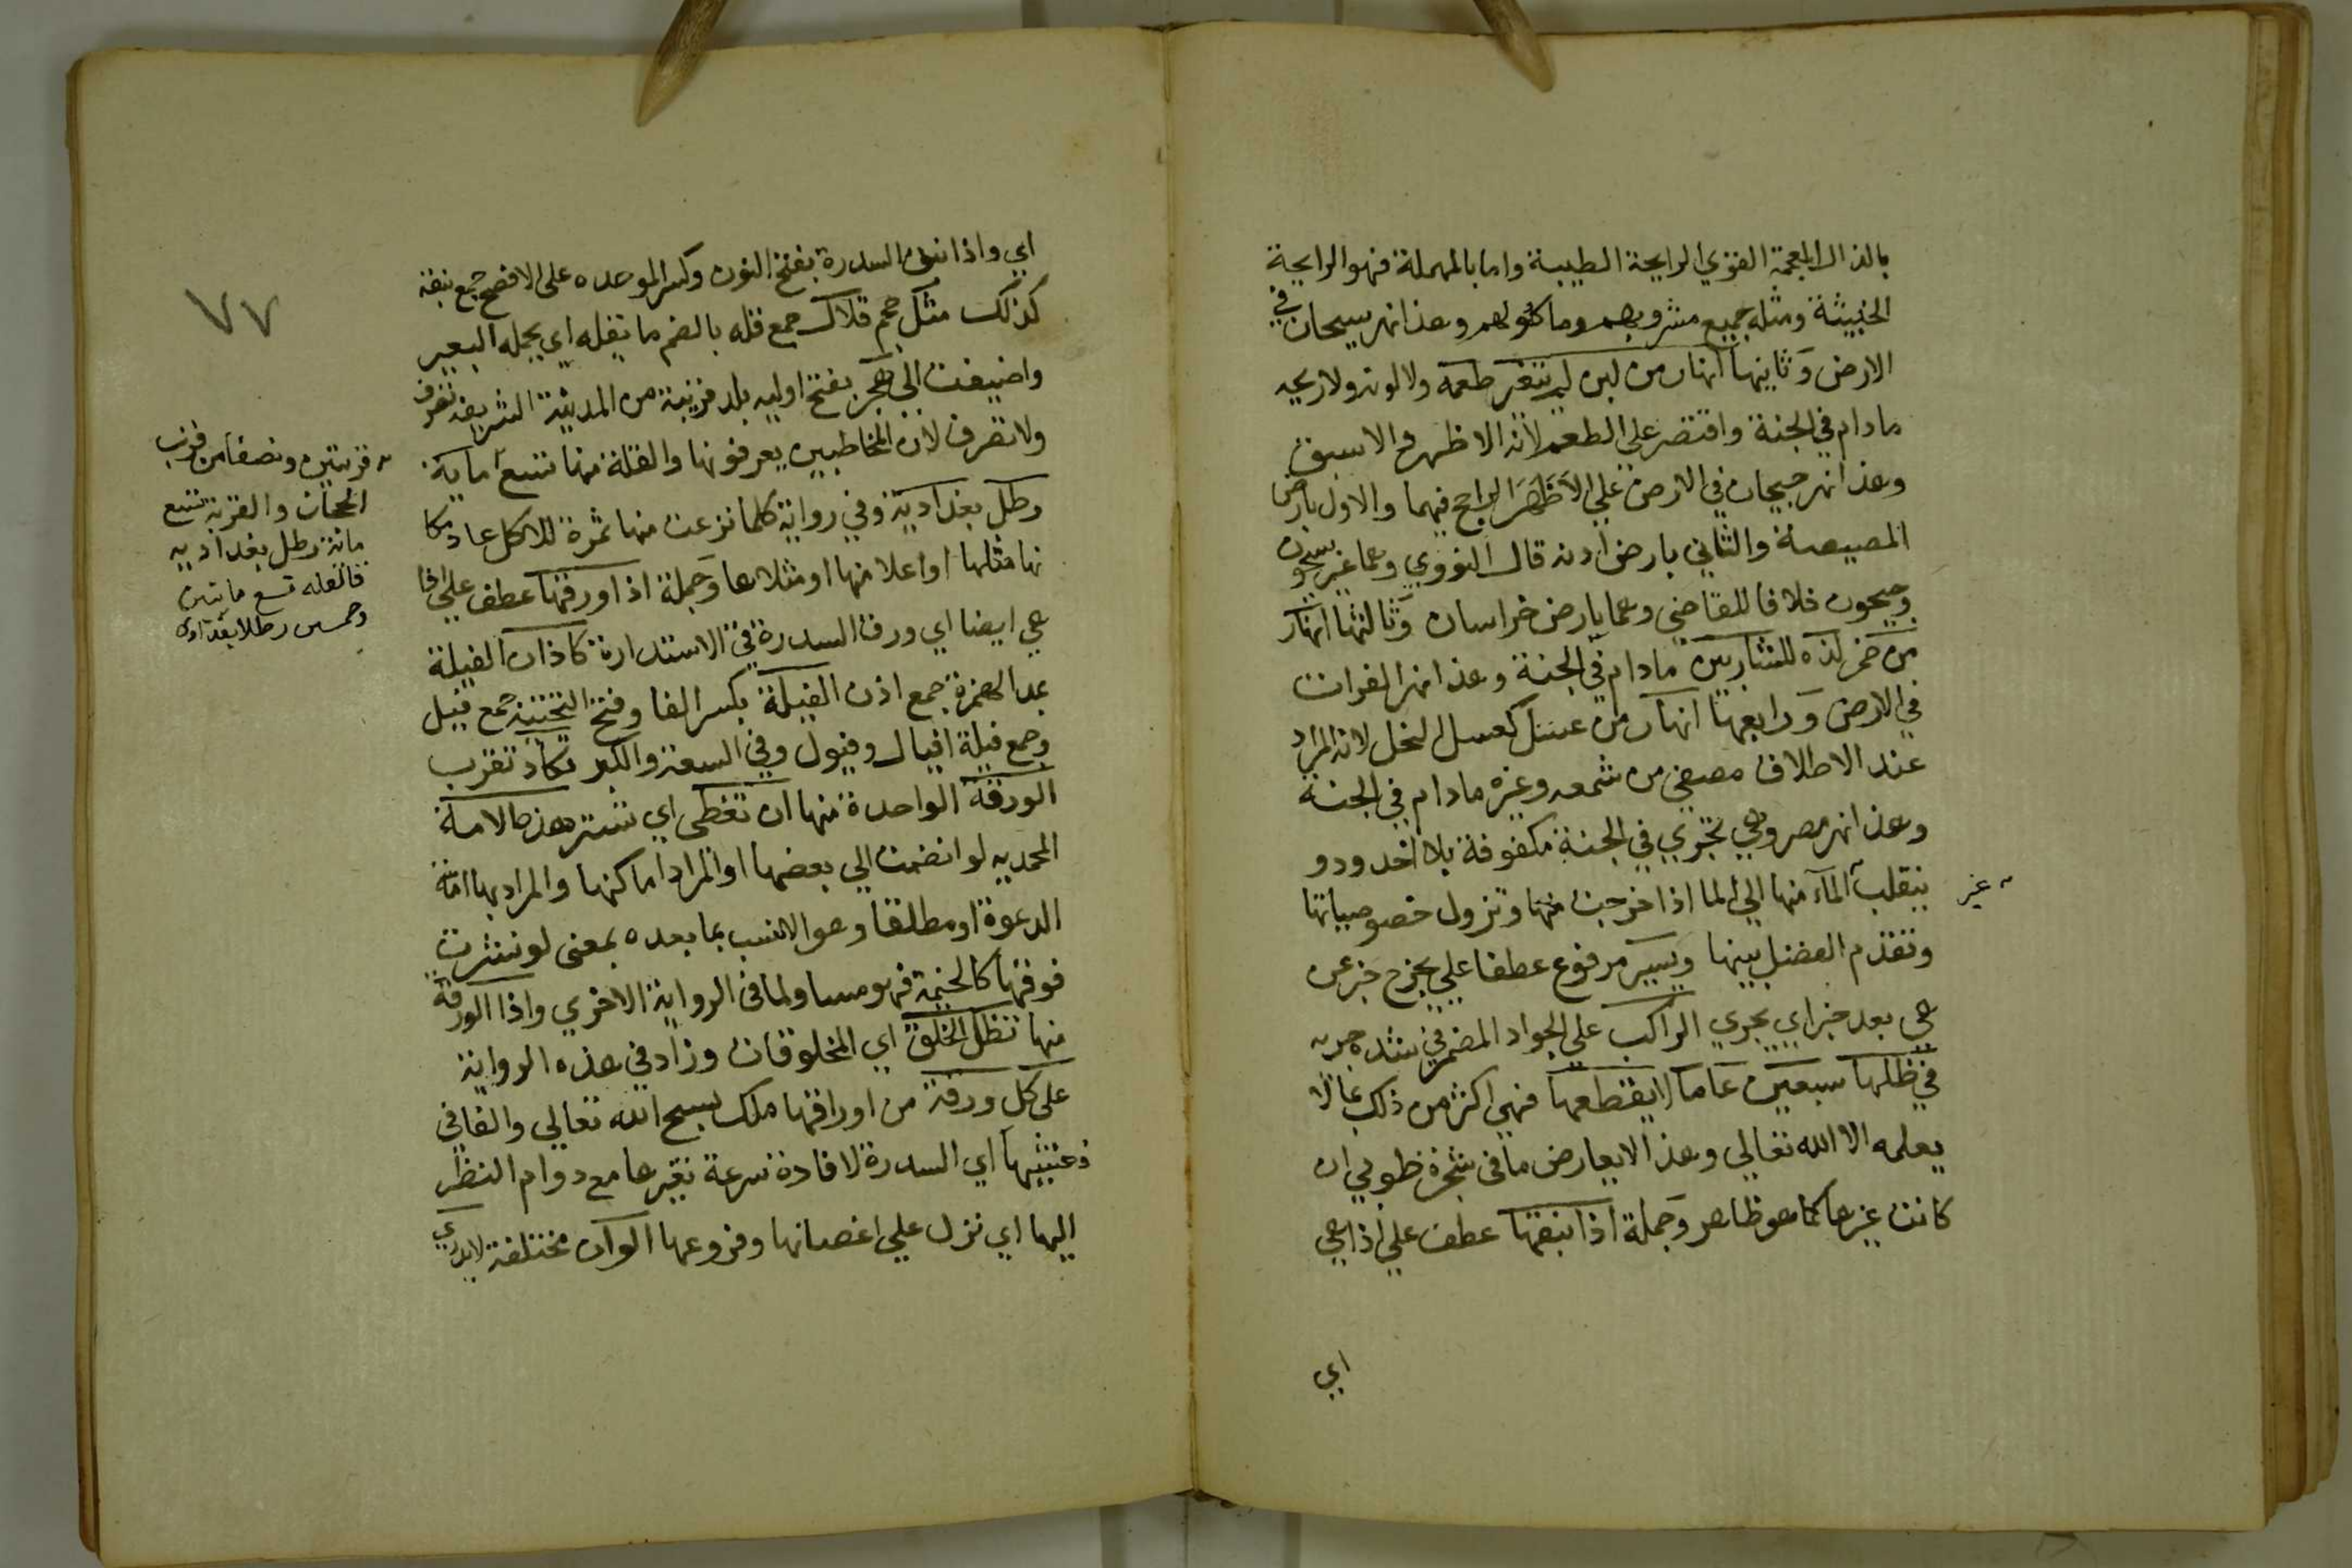 بالذال المعجمة القوي الرايحة الطيبة واما بالمهملة فهو الرايحة
الخبيثة ومثله جميع مشروبهم وماكولهم وهذا نهر سيحان في
الارض وثانيها انهار من لبن لم يتغير طعمه ولا لونه ولا ريحه
مادام في الجنة واقتصر علي الطعم لانه الاظهر والاسبق
وهذا نهر جيحان في الارض علي الاظهر الراجح فيهما والاول بارض
المصيصة والثاني بارض ادنه قال النووي وهما غير سيحون
وجيحون خلافا للقاضي وهما بارض خراسان وثالثها انهار
من خمر لذه للشاربين مادام في الجنة وهذا نهر الفرات
في الارض ورابعها انهار من عسل كعسل النحل لانه المراد
عند الاطلاق مصفي من شمعه وغيره مادام في الجنة
وهذا نهر مصر وهي تجري في الجنة مكفوفة بلا اخدود و
ينقلب المآء منها الي الما اذا خرجت منها وتزول خصوصياتها
غير
وتقدم الفضل بينها ويسير مرفوع عطفا علي يخرج خبر عن
هي بعد خبر اي يجري الراكب علي الجواد المضمر في شده جريه
في ظلها سبعين عاما لا يقطعها فهي اكثر من ذلك مما لا
يعلمه الا الله تعالي وهذا لا يعارض ما في شجرة طوبي ان
كانت غيرها كما هو ظاهر وجملة اذا نبقها عطف علي اذا هي
اي
٧٧
اي واذا نبق السدرة بفتح النون وكسر الموحده علي الافصح جمع نبقة
كذلك مثل حجم قلال جمع قله بالضم ما يقله اي يحمله البعير
واضيفت الي هجر بفتح اوليه بلد قريبة من المدينة الشريفة تصرف
ولا تصرف لان المخاطبين يعرفونها والقلة منها تسع ماية
قربتين ونصفا من قرب
الحجاز والقربة تسع
مائة رطل بغداديه
فالقله تسع مائتين
وخمسين رطلا بغدادي
رطل بغدادية وفي رواية كلما نزعت منها ثمرة للاكل عاد مكا
نها مثلها او اعلا منها او مثلاها وجملة اذا ورقها عطف علي اذا
هي ايضا اي ورق السدرة في الاستدارة كاذان الفيلة
بمد الهمزة جمع اذن الفيلة بكسر الفا وفتح التحتية جمع فيل
وجمع فيلة افيال وفيول وفي السعة والكبر تكاد تقرب
الورقة الواحدة منها ان تغطي اي تستر هذه الامة
المحمديه لو انضمت الي بعضها او المراد اماكنها والمراد بها امة
الدعوة او مطلقا وهو الانسب بما بعده بمعني لو نشرت
فوقها كالخيمة فهو مساو لما في الرواية الاخري واذا الورقة
منها تظل الخلق اي المخلوقات وزاد في هذه الرواية
علي كل ورقة من اوراقها ملك يسبح الله تعالي والفا في
فغشيها اي السدرة لافادة سرعة تغيرها مع دوام النظر
اليها اي نزل علي اغصانها وفروعها الوان مختلفة لا يدري